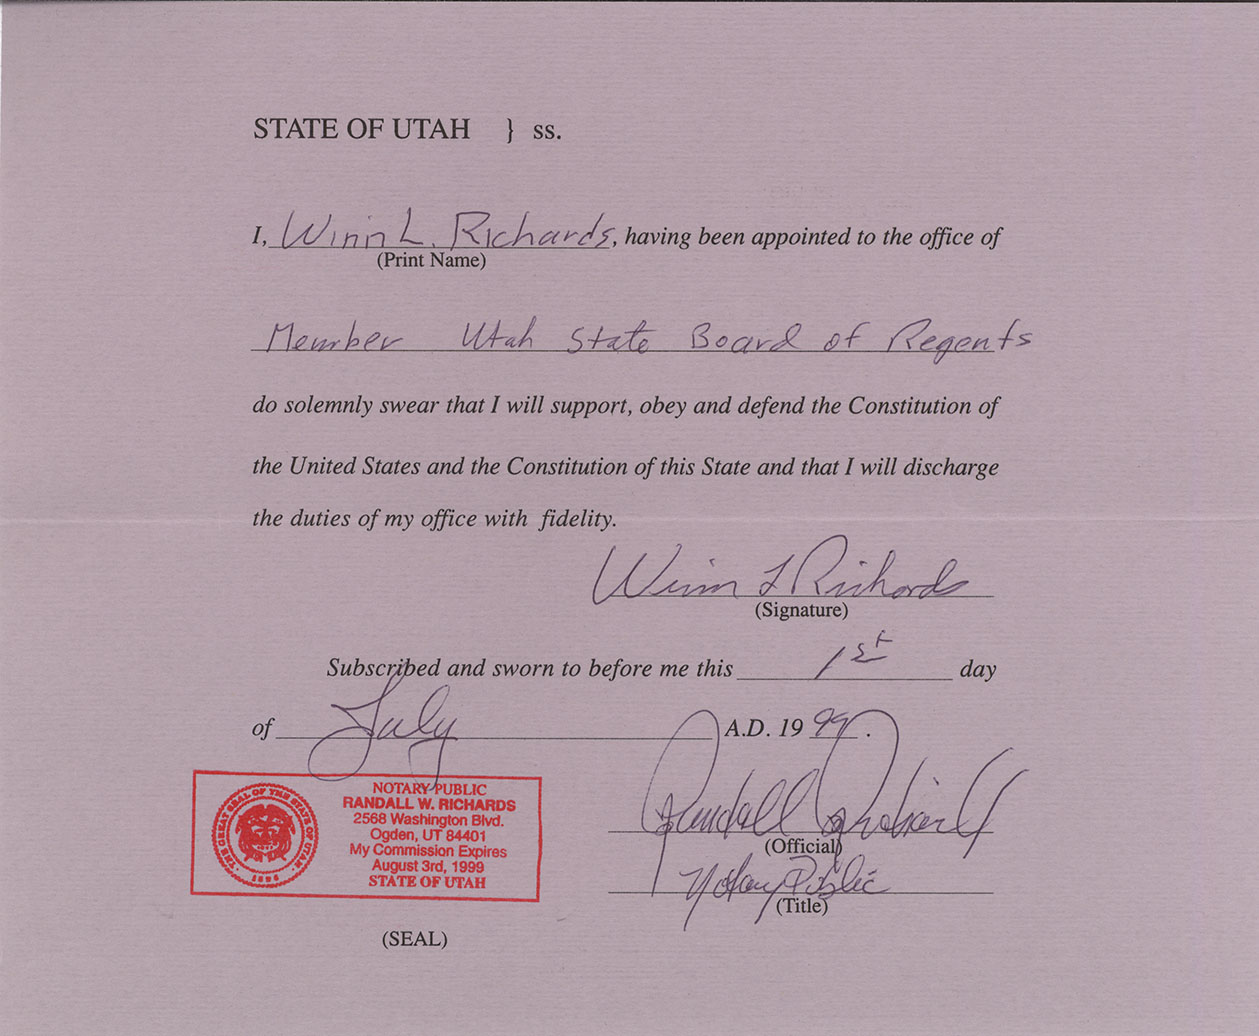 STATE OF UTAH } ss.
I, Winn L. Richards, having been appointed to the office of
(Print Name)
Member Utah State Board of Regents
do solemnly swear that I will support, obey and defend the Constitution of
the United States and the Constitution of this State and that I will discharge
the duties of my office with fidelity.
Winn L Richards
(Signature)
Subscribed and sworn to before me this 1st day
of July A.D. 1999.
NOTARY PUBLIC
RANDALL W. RICHARDS
2568 Washington Blvd.
Ogden, UT 84401
My Commission Expires
August 3rd, 1999
STATE OF UTAH
THE GREAT SEAL OF THE STATE OF UTAH
1896
Randall Richards
(Official)
Notary Public
(Title)
(SEAL)